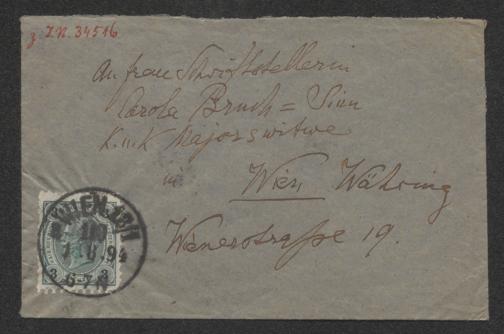 z. I.N. 34516
An frau Schriftstellerin
Carola Bruch = Sinn
K. u. K Majorswitwe
in
Wien Währing
Wienerstraße 19.
WIEN
94
3 6-7 N 3